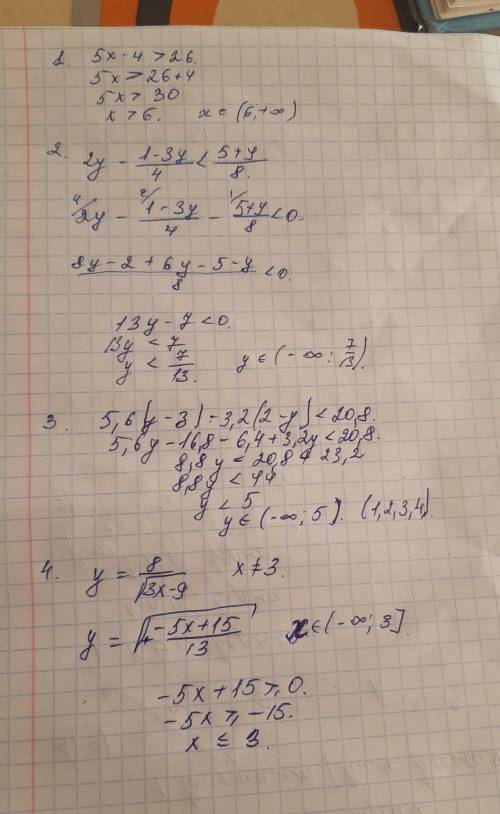 1. 5x - 4 > 26.
5x > 26 + 4
5x > 30
x > 6. x ∈ (6, +∞)
2. 2y - (1-3y)/4 < (5+y)/8.
4/ 2y - 2/ (1-3y)/4 - 1/ (5+y)/8 < 0.
(8y - 2 + 6y - 5 - y)/8 < 0.
13y - 7 < 0.
13y < 7
y < 7/13. y ∈ (-∞; 7/13).
3. 5,6(y - 3) - 3,2(2 - y) < 20,8.
5,6y - 16,8 - 6,4 + 3,2y < 20,8.
8,8y < 20,8 + 23,2
8,8y < 44
y < 5
y ∈ (-∞; 5). (1,2,3,4).
4. y = 8/√(3x-9) x ≠ 3.
y = √((-5x+15)/13) x ∈ (-∞; 3]
-5x + 15 ⩾ 0.
-5x ⩾ -15.
x ≤ 3.